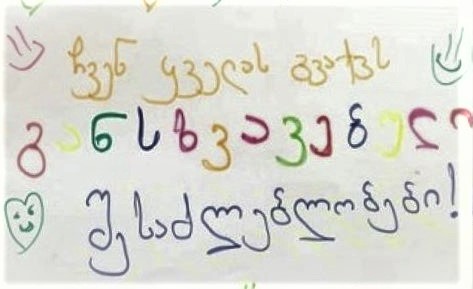 ჩვენ ყველას გვაქვს
განსხვავებული
შესაძლებლობები!